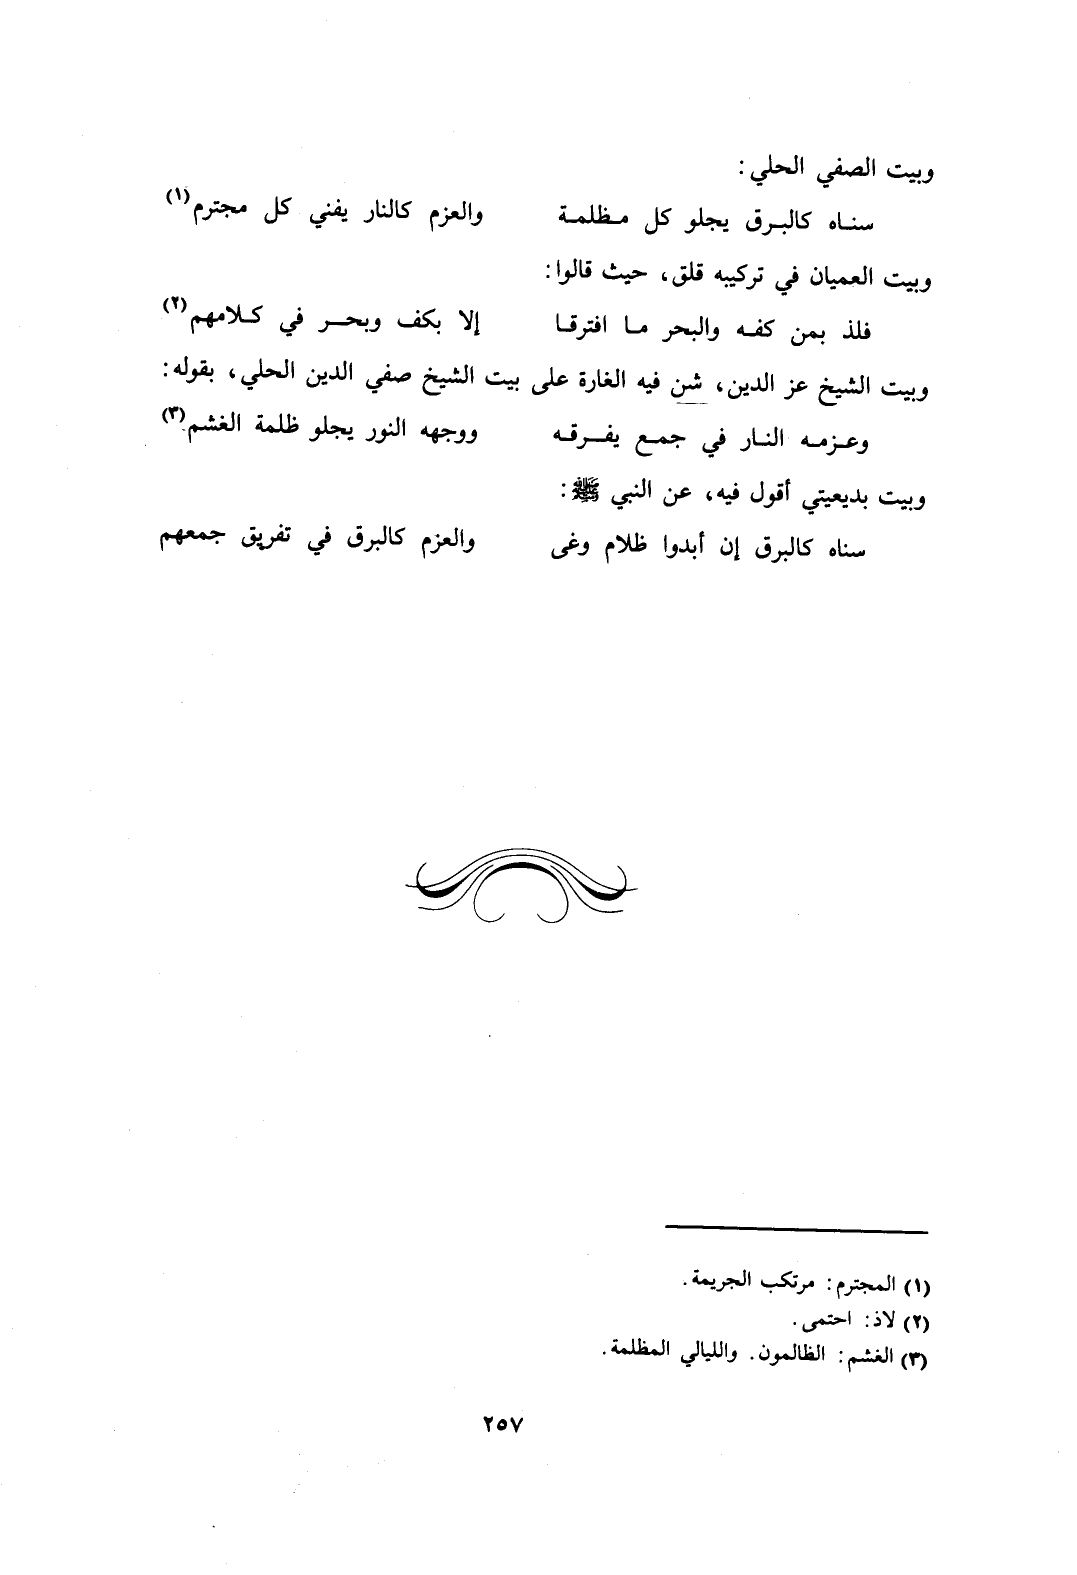 وبيت الصفي الحلي:
سناه كالبرق يجلو كل مظلمة والعزم كالنار يفني كل مجترم(١)
وبيت العميان في تركيبه قلق، حيث قالوا:
فلذ بمن كفه والبحر ما افترقا إلا بكف وبحر في كلامهم(٢)
وبيت الشيخ عز الدين، شن فيه الغارة على بيت الشيخ صفي الدين الحلي، بقوله:
وعزمه النار في جمع يفرقه ووجهه النور يجلو ظلمة الغشم(٣)
وبيت بديعيتي أقول فيه، عن النبي ﷺ:
سناه كالبرق إن أبدوا ظلام وغى والعزم كالبرق في تفريق جمعهم
(١) المجترم: مرتكب الجريمة.
(٢) لاذ: احتمى.
(٣) الغشم: الظالمون. والليالي المظلمة.
٢٥٧